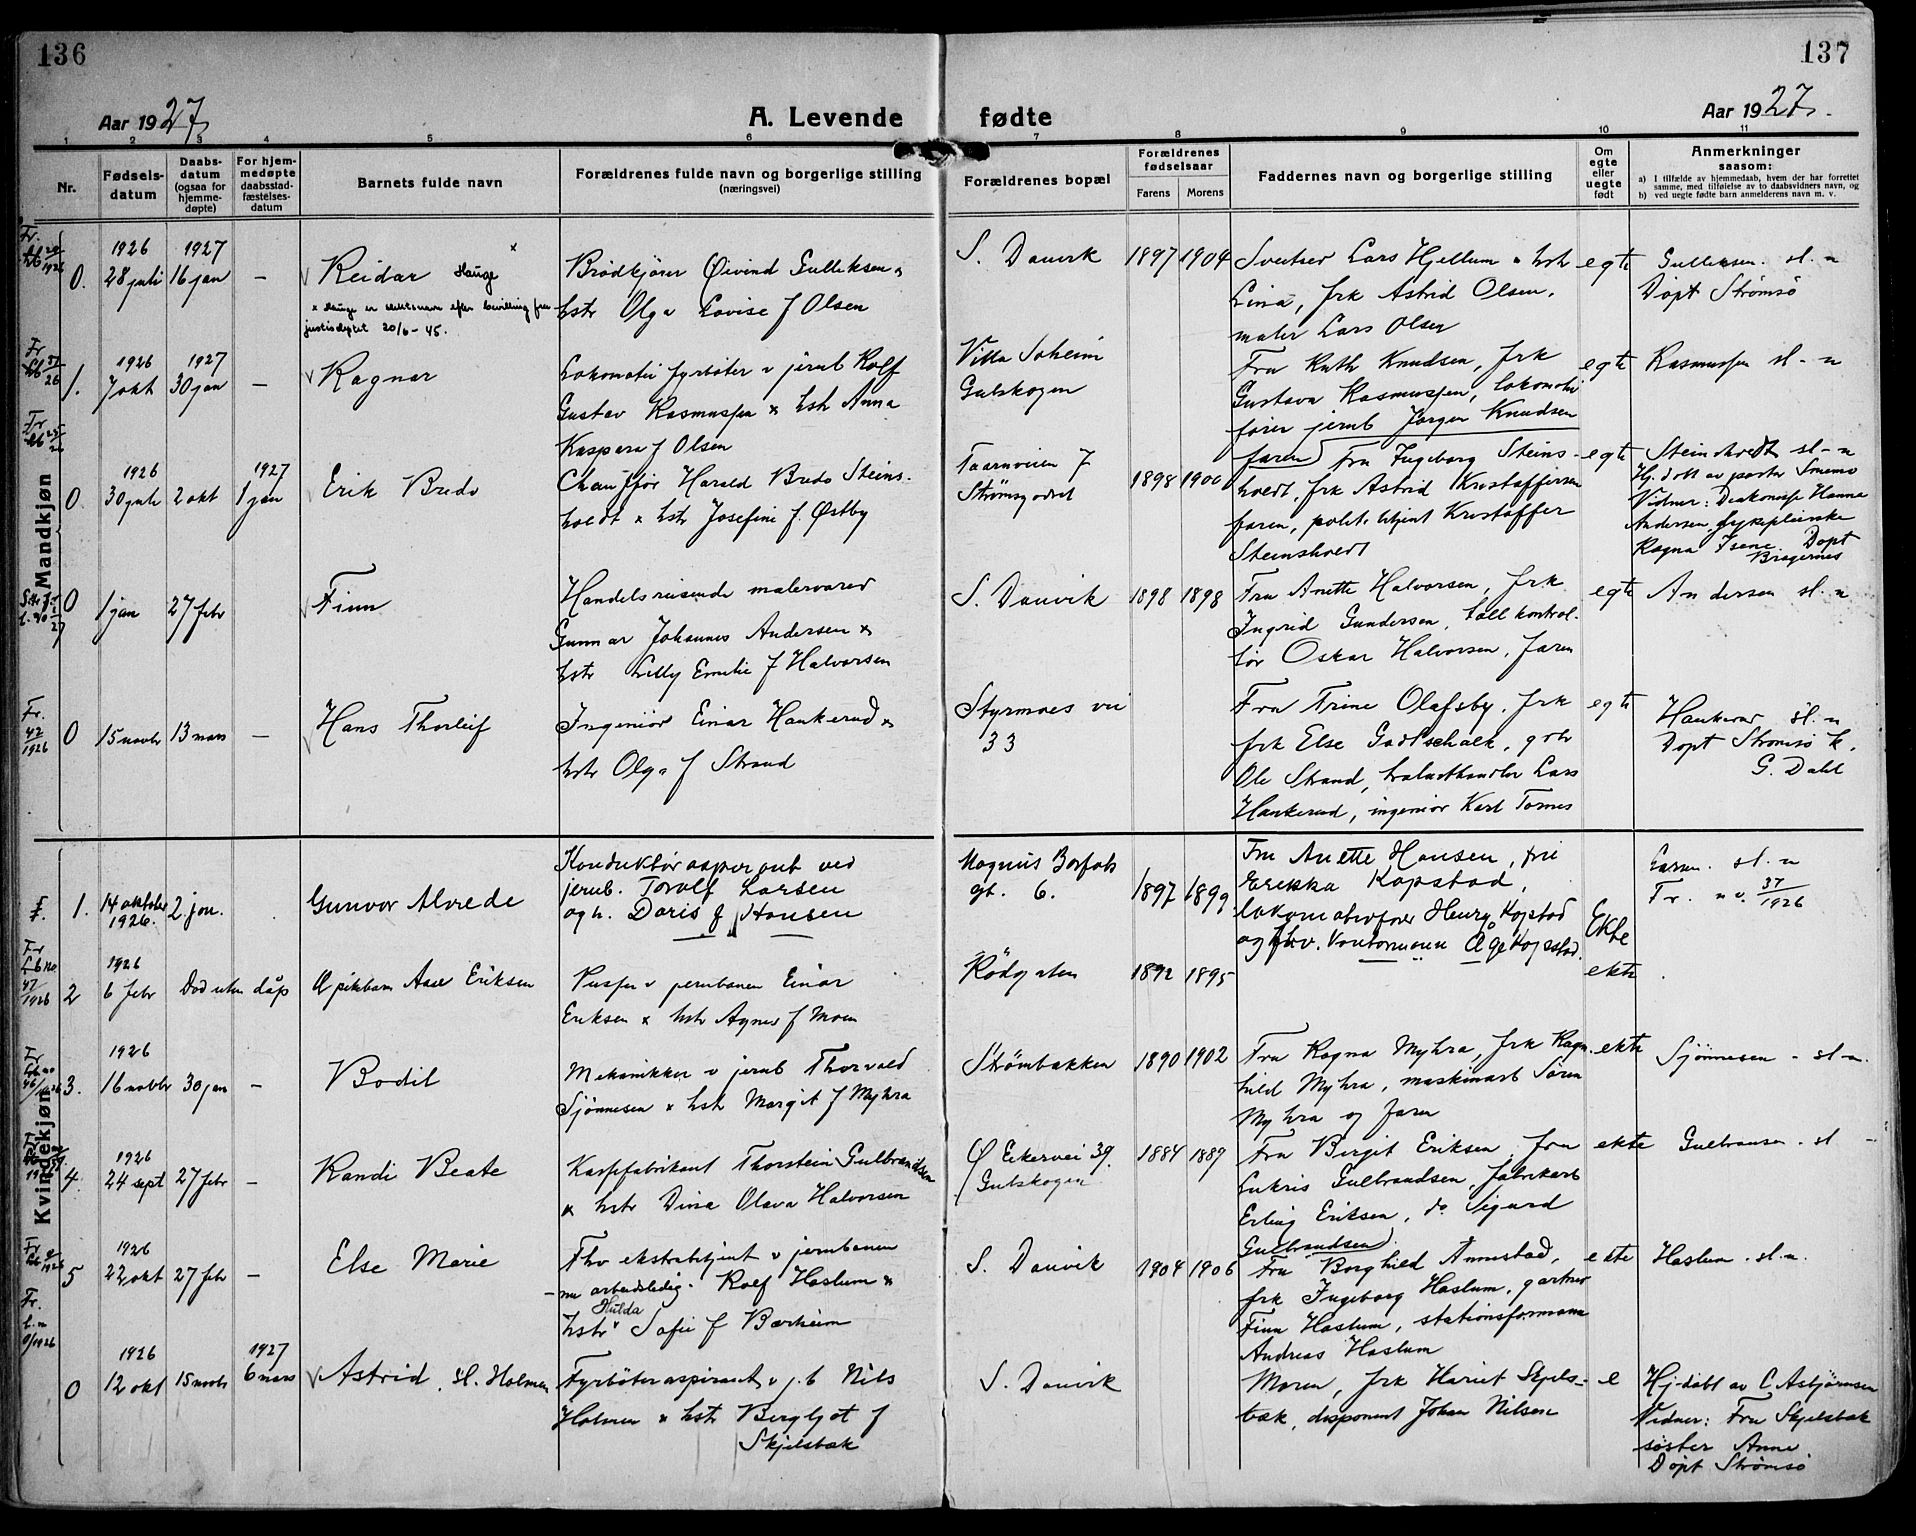 136
137
Aar 1927
A. Levende fødte
Aar 1927.
1 2 3 4 5 6 7 8 9 10 11
Nr.
Fødsels-
datum
Daabs-
datum
(ogsaa for
hjemme-
døpte)
For hjem-
medøpte
daabsstad-
fæstelses-
datum
Barnets fulde navn
Forældrenes fulde navn og borgerlige stilling
(næringsvei)
Forældrenes bopæl
Forældrenes
fødselsaar
Farens Morens
Faddernes navn og borgerlige stilling
Om
egte
eller
uegte
født
Anmerkninger
saasom:
a) I tilfælde av hjemmedaab, hvem der har forrettet
samme, med tilføielse av to daabsvidners navn, og
b) ved uegte fødte barn anmelderens navn m. v.
Mandkjøn
0.
1926
28 juli
1927
16 jan
–
Reidar Hauge x
x Hauge er slektsnavn efter bevilling fra
justisdeptet 20/6-45.
Brødkjører Øivind Gulliksen x
hstr Olga Lovise f Olsen
S. Danvik
1897 1904
Sveitser Lars Hjellum x hstr
Lina, frk Astrid Olsen,
maler Lars Olsen
egte
Gulliksen sl. n
Døpt Strømsø
1.
1926
7 okt
1927
30 jan
–
Ragnar
Lokomotiv fyrbøter v jernb Rolf
Gustav Rasmussen x hstr Anna
Kaspara f Olsen
Villa Soheim
Gulskogen
Fru Ruth Knudsen, frk
Gustava Rasmussen, lokomotiv
fører jernb Jørgen Knudsen
faren
egte
Rasmussen sl - n
0.
1926
30 juli
2 okt
1927
1 jan
Erik Bredo
Chauffør Harald Bredo Steins-
holdt x hstr Josefine f. Østby
Taarnveien 7
Strømsgodset
1898 1900
Fru Ingeborg Steins-
holdt, frk Astrid Kristoffersen
faren, polit. betjent Kristoffer
Steinsholdt
egte
Steinsholdt sl - n
Hj. døbt av pastor Smemo
Vidner: Diakonisse Hanna
Andersen, sykepleierske
Ragna Isene Døpt
Bragernes
0
1 jan
27 febr
Finn
Handelsreisende malervarer
Gunnar Johannes Andersen x
hstr Lilly Emilie f Halvorsen
S. Danvik
1898 1898
Fru Anette Halvorsen, frk
Ingrid Gundersen, tollkontrol-
lør Oskar Halvorsen, faren
egte
Andersen sl. n
Fr.
42
1926
0
15 novbr
13 mars
–
Hans Thorleif
Ingeniør Einar Hankerud x
hstr Olga f Strand
Styrmoes vei
33
Fru Trine Olafsby, frk
frk Else Godtschalk, gbr
Ole Strand, trelasthandler Lars
Hankerud, ingeniør Karl Tornes
egte
Hankerud sl. n
Døpt Strømsø k.
G. Dahl
Kvindekjøn
1.
14 oktober
1926.
2 jan.
Gunvor Alvrede
Konduktøraspirant ved
jernb. Torolf Larsen
og h. Doris f Hansen
Magnus Barfots
gt. 6.
1897 1899
Fru Anette Hansen, frk
Erikka Kopstad,
lokomotivfører Henry Kopstad
og fhv. kontormann Åge Kopstad.
Ekte
Larsen. sl. n
Fr. n v. 37/1926
2
1926
6 febr
Død uten dåp
pikebarn Aase Eriksen
Pusser v jernbanen Einar
Eriksen x hstr Agnes f Moen
Rødgaten
1892 1895
ekte
3.
1926
16 novbr
30 jan
–
Bodil
Mekanikker v jernb Thorvald
Sjønnesen x hstr Margit f Myhra
Strømbakken
1890 1902
Fru Ragna Myhra, frk Ragn-
hild Myhra, maskinarb Søren
Myhra og faren
ekte
Sjønnesen - sl - n.
4.
1926
24 sept
27 febr
–
Randi Beate
Kassefabrikant Thorstein Gulbrandsen
x hstr Dina Olava Halvorsen
Ø Eikervei 39
Gulskogen
1884 1889
Fru Birgit Eriksen, fru
Lukris Gulbrandsen, fabrikarb
Erling Eriksen, do Sigurd
Gulbrandsen
ekte
Gulbransen - sl -
5
1926
22 okt
27 febr
–
Else Marie
Fhv ekstrabetjent v jernbanen
- nu arbeidsledig - Rolf Haslum x
Hulda
hstr Sofie f Barheim
S. Danvik
1904 1906
Fru Borghild Annestad,
frk Ingeborg Haslum, gartner
Finn Haslum, stationsformann
Andreas Haslum
ekte
Haslum - sl. n.
0
1926
12 okt
15 novbr
1927
6 mars
Astrid, sl. Holmen
Fyrbøteraspirant v j.b Nils
Holmen x hstr Bergljot f
Skjelsbæk
S. Danvik
Moren, frk Hariet Skjels-
bæk, disponent Johan Nilsen
e
Hj-døbt av C Asbjørnsen
Vidner: Fru Skjelsbæk
søster Anna
Døpt Strømsø